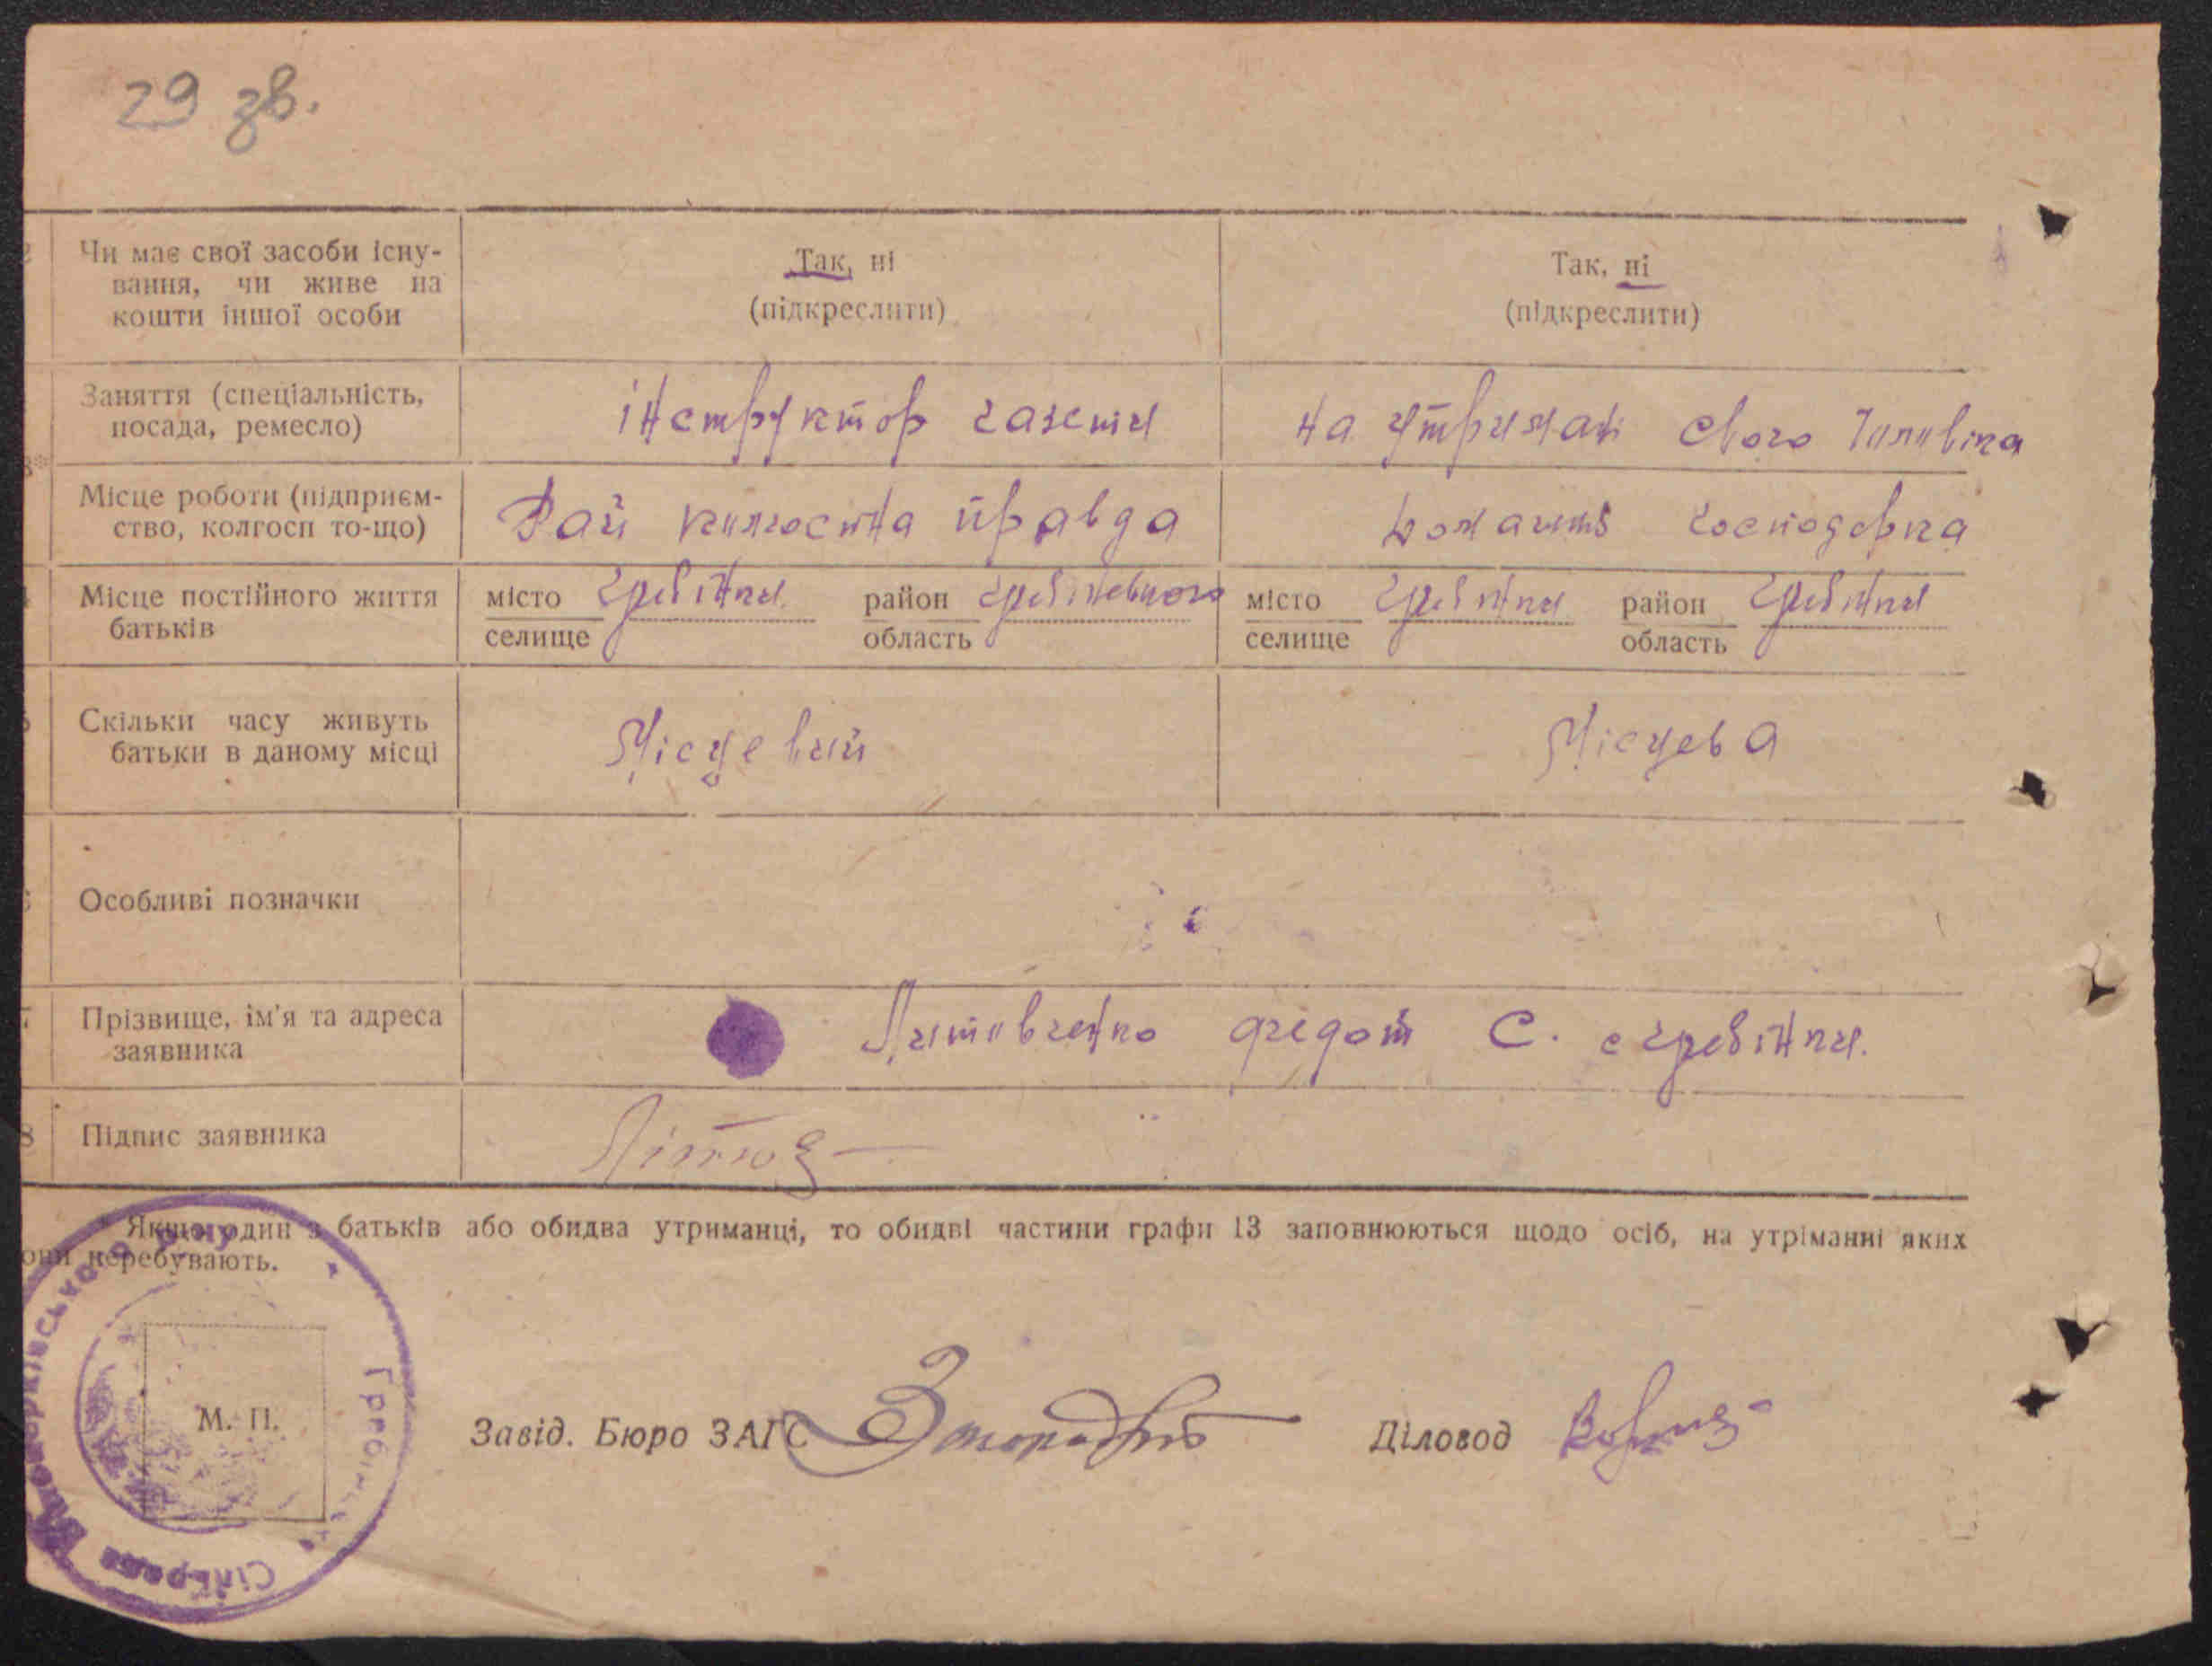 29 зв.
Чи має свої засоби існу-
вання, чи живе на
кошти іншої особи
Так, ні
(підкреслити)
Так, ні
(підкреслити)
Заняття (спеціальність,
посада, ремесло)
інструктор газети
на утриман свого
Місце роботи (підприєм-
ство, колгосп то-що)
Рай правда
господарка
Місце постійного життя
батьків
місто Гребінки район
селище область
місто Гребінки район Гребінки
селище область
Скільки часу живуть
батьки в даному місці
Місцевий
Місцева
Особливі позначки
Прізвище, ім'я та адреса
заявника
Литовченко Федот С. с Гребінки.
8 Підпис заявника
* Якщо один з батьків або обидва утриманці, то обидві частини графи 13 заповнюються щодо осіб, на утріманні яких
они перебувають.
М. П.
Сільрада
Завід. Бюро ЗАГС
Діловод